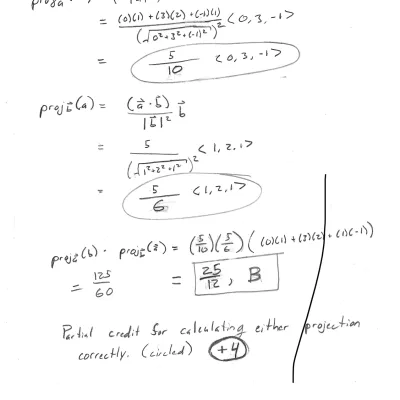 = (0)(1) + (3)(2) + (-1)(1) / (√0²+3²+(-1)²)² <0, 3, -1>
= 5/10 <0, 3, -1>
proj_b⃗(a) = (a⃗ · b⃗) / |b⃗|² b⃗
= 5 / (√1²+2²+1²)² <1, 2, 1>
= 5/6 <1, 2, 1>
proj_a⃗(b) · proj_b⃗(a⃗) = (5/10)(5/6) ( (0)(1) + (3)(2) + (1)(-1) )
= 125/60 = 25/12, B
Partial credit for calculating either projection
correctly. (circled) +4